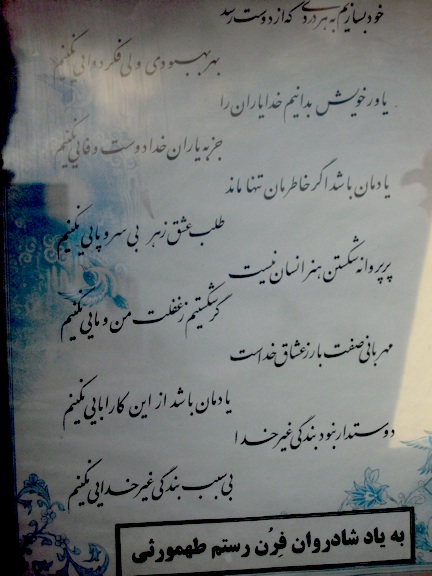 خود بسازیم به هر دردی که از دوست رسد
بهر بهبودی ولی فکر دوایی نکنیم
یاور خویش بدانیم خدایاران را
جز به یاران خدادوست وفایی نکنیم
یادمان باشد اگر خاطرمان تنها ماند
طلب عشق ز هر بی سر و پایی نکنیم
پر پروانه شکستن هنر انسان نیست
گر شکستیم ز غفلت من و مایی نکنیم
مهربانی صفت بارز عشاق خداست
یادمان باشد از این کار ابایی نکنیم
دوستدار نبود بندگی غیر خدا
بی سبب بندگی غیر خدایی نکنیم
به یاد شادروان فِرُن رستم طهمورثی